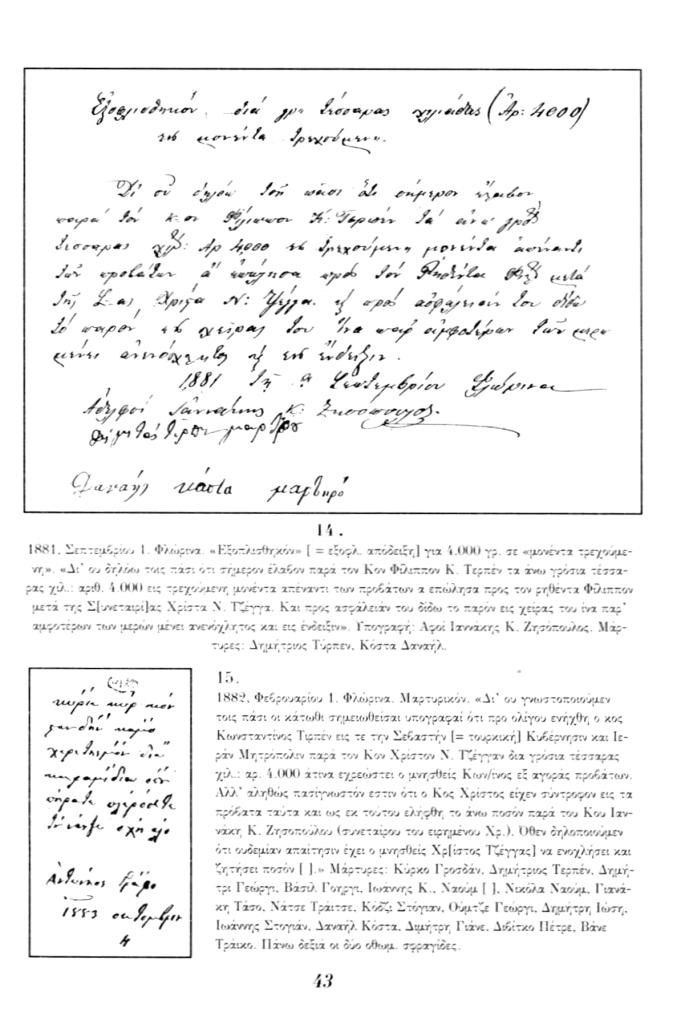 Ἐξοφλισθηκόν, διά γρ. τέσσαρας χιλιάδας (Ἀρ: 4000)
εις μονέντα τρεχούμενη.
Δι' οὗ δηλόω τοῖς πᾶσι ὅτι σήμερον ἔλαβον
παρά τόν κ.ον Φίλιππον Κ: Τερπέν τά ἄνω γρόσ
τεσσαρας χιλ: Αρ 4,000 εις τρεχούμενη μονέντα ἀπέναντι
τῶν προβάτων ἅ ἐπώλησα πρός τόν Ῥηθέντα Φιλ μετά
τῆς Σ-ας Χρίστα Ν: Τζέγγα. κ προς ἀσφάλειάν του δίδω
τό παρόν εις χείρας του ἵνα παρ' ἀμφοτέρων τῶν μερῶ
μένει ἀνενόχλητος κ εις ἔνδειξιν.
1881 τῇ α Σεπτεμβρίου Φλώρινα
Αδελφοί Ιαννάκης Κ: Ζησοπουλος
μαρτ
Δαναήλ κόστα μαρτηρό
14.
1881, Σεπτεμβρίου 1. Φλώρινα. «Εξοπλισθηκόν» [ = εξοφλ. απόδειξη] για 4.000 γρ. σε «μονέντα τρεχούμε-
νη». «Δι' ου δηλόω τοις πάσι ότι σήμερον έλαβον παρά τον Κον Φίλιππον Κ. Τερπέν τα άνω γρόσια τέσσα-
ρας χιλ.: αριθ. 4.000 εις τρεχούμενη μονέντα απέναντι των προβάτων α επώλησα προς τον ρηθέντα Φίλιππον
μετά της Σ[υνεταιρί]ας Χρίστα Ν. Τζέγγα. Και προς ασφάλειάν του δίδω το παρόν εις χείρας του ίνα παρ'
αμφοτέρων των μερών μένει ανενόχλητος και εις ένδειξιν». Υπογραφή: Αφοί Ιαννάκης Κ. Ζησόπουλος. Μάρ-
τυρες: Δημήτριος Τύρπεν, Κόστα Δαναήλ.
15.
1882, Φεβρουαρίου 1. Φλώρινα. Μαρτυρικόν. «Δι' ου γνωστοποιούμεν
τοις πάσι οι κάτωθι σημειωθείσαι υπογραφαί ότι προ ολίγου ενήχθη ο κος
Κωνσταντίνος Τιρπέν εις τε την Σεβαστήν [= τουρκική] Κυβέρνησιν και Ιε-
ράν Μητρόπολιν παρά τον Κον Χρίστον Ν. Τζέγγαν δια γρόσια τέσσαρας
χιλ.: αρ. 4.000 άτινα εχρεώστει ο μνησθείς Κων/ίνος εξ αγοράς προβάτων.
Αλλ' αληθώς πασίγνωστόν εστιν ότι ο Κος Χρίστος είχεν σύντροφον εις τα
πρόβατα ταύτα και ως εκ τούτου ελήφθη το άνω ποσόν παρά του Κου Ιαν-
νάκη Κ. Ζησοπούλου (συνεταίρου του ειρημένου Χρ.). Όθεν δηλοποιούμεν
ότι ουδεμίαν απαίτησιν έχει ο μνησθείς Χρ[ίστος Τζέγγας] να ενοχλήσει και
ζητήσει ποσόν [ ].» Μάρτυρες: Κύρκο Γροσδάν, Δημήτριος Τερπέν, Δημή-
τρι Γεώργι, Βάσιλ Γοηργι, Ιωάννης Κ., Ναούμ [ ], Νικόλα Ναούμ, Γιανά-
κη Τάσο, Νάτσε Τράιτσε, Κόδζι Στόγιαν, Ούμτζε Γεώργι, Δημήτρη Ιώση,
Ιωάννης Στογιάν, Δαναήλ Κόστα, Διμήτρη Γιάνε, Διβίτκο Πέτρε, Βάνε
Τράικο. Πάνω δεξιά οι δύο οθωμ. σφραγίδες.
κύριε κύρ
χερετισμόν δια
κεραμίδια
Ἀντώνιος
1883 οκτομβριου
4
43